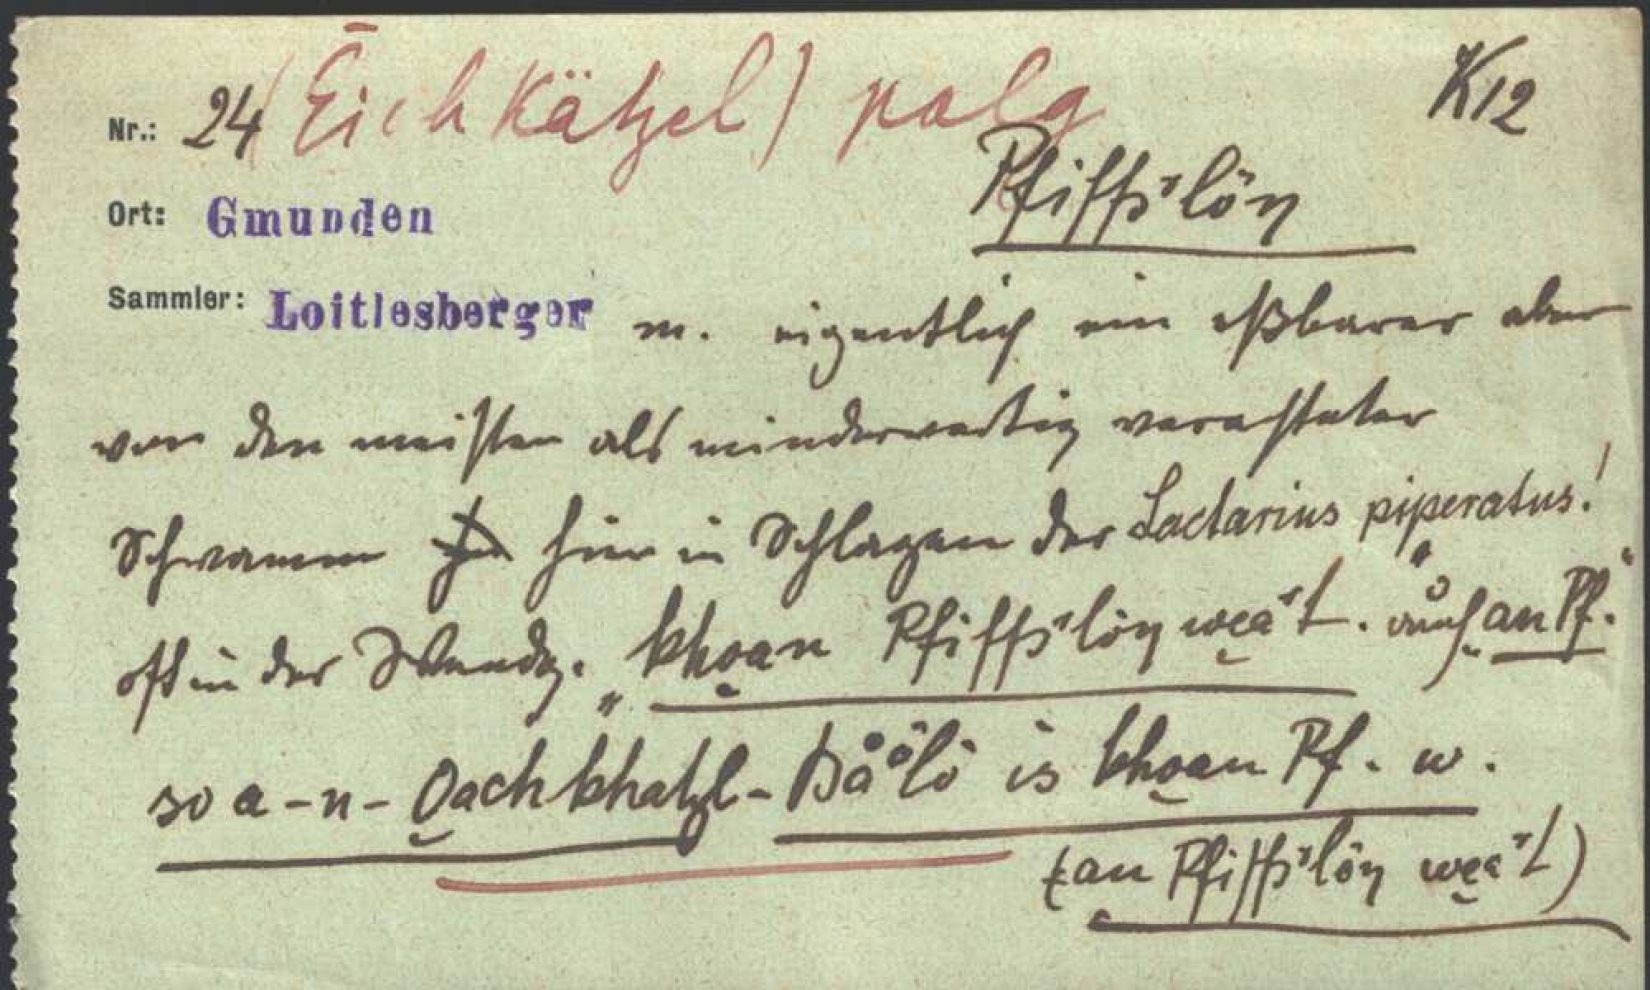 Nr.: 24 (Eichkätzel) palg K12
Pfiffʾlöŋ
Ort: Gmunden
Sammler: Loitlesberger
m. eigentlich ein eßbarer aber
von den meisten als minderwertig verachteter
Schwamm hier in Schlagen der Lactarius piperatus!
oft in der Wendg. „khoan Pfiffʾlöŋ weaʾt. auch an Pf."
so a-n-Oachkhatzl-Båö̊lö is khoan Pf. w.
(an Pfiffʾlöŋ weaʾt)